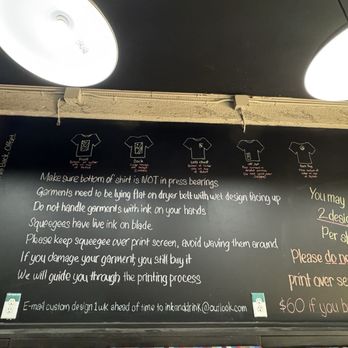 Front
Back
Left chest
Make sure bottom of shirt is NOT in press bearings
Garments need to be lying flat on dryer belt with wet design facing up
Do not handle garments with ink on your hands
Squeegees have live ink on blade
Please keep squeegee over print screen, avoid waving them around
If you damage your garment, you still buy it
We will guide you through the printing process
E-mail custom design 1 wk ahead of time to inkanddrink@outlook.com
You may
2 desi
Per s
Please do no
print over se
$60 if you b